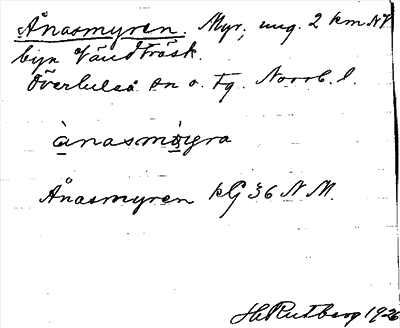 Ånasmyren. Myr, ung. 2 km NV
byn Vändträsk.
Överluleå sn o. tg. Norrb. l.
Ånasmyren kG 36 N M.
H Rutberg 1926